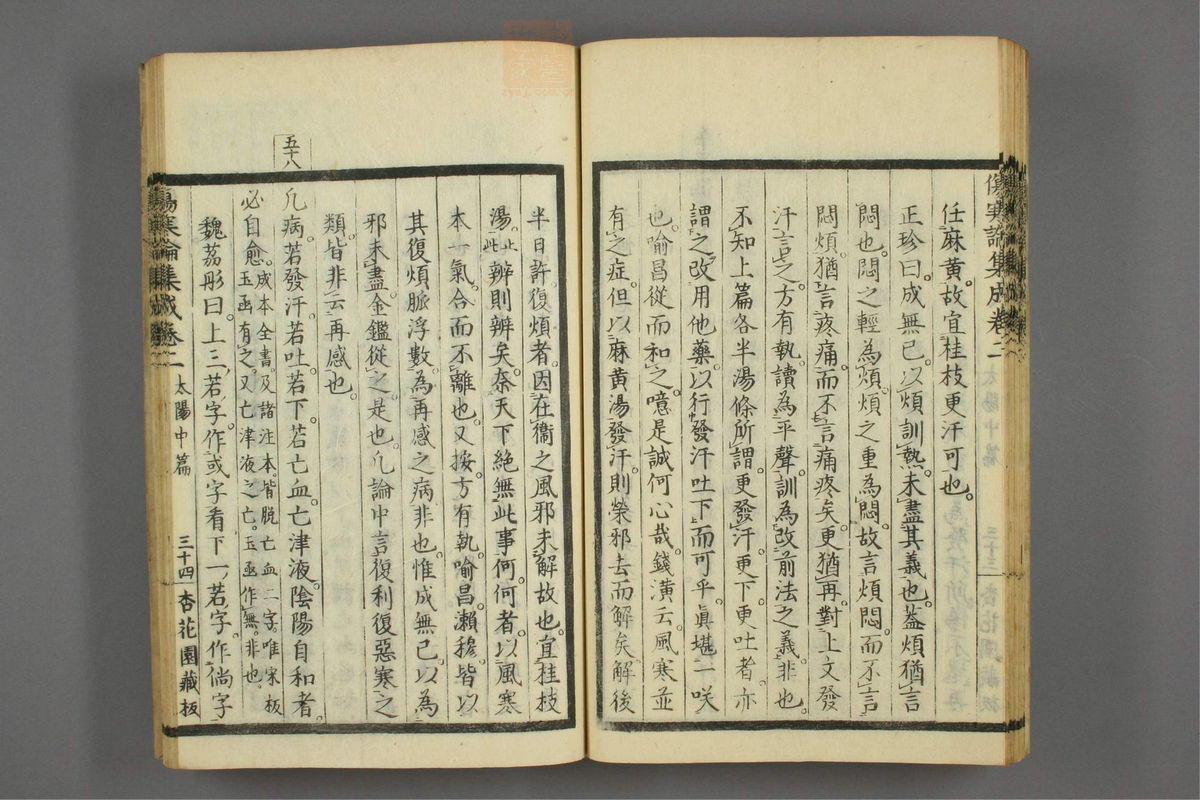 傷寒論集成卷二
任麻黄。故宜桂枝更汗可也。
正珍曰。成無已。以煩訓熱。未盡其義也。蓋煩猶言
悶也。悶之輕為煩。煩之重為悶。故言煩悶。而不言
悶煩。猶言疼痛。而不言痛疼矣。更猶再。對上文發
汗言之。方有執讀為平聲。訓為改前法之義。非也。
不知上篇各半湯條所謂更發汗。更下。更吐者。亦
謂之改用他藥。以行發汗吐下。而可乎。眞堪一咲
也。喻昌從而和之。噫是誠何心哉。錢潢云。風寒並
有之症。但以麻黄湯發汗。則榮邪去而解矣。解後
半日許復煩者。因在衞之風邪未解故也。宜桂枝
湯。止此辨則辨矣。奈天下絶無此事何。何者。以風寒
本一氣。合而不離也。又按。方有執。喻昌。瀨穆。皆以
其復煩脈浮數。為再感之病。非也。惟成無已。以為
邪未盡。金鑑從之。是也。凡論中言復利復惡寒之
類。皆非云再感也。
五十八
凡病。若發汗。若吐。若下。若亡血。亡津液。陰陽自和者。
必自愈。成本全書。及諸注本。皆脱亡血二字。唯宋板
玉函有之。又亡津液之亡。玉函作無。非也。
魏荔彤曰。上三若字。作或字看。下一若字。作倘字
傷寒論集成卷二 太陽中篇 三十四 杏花園藏板